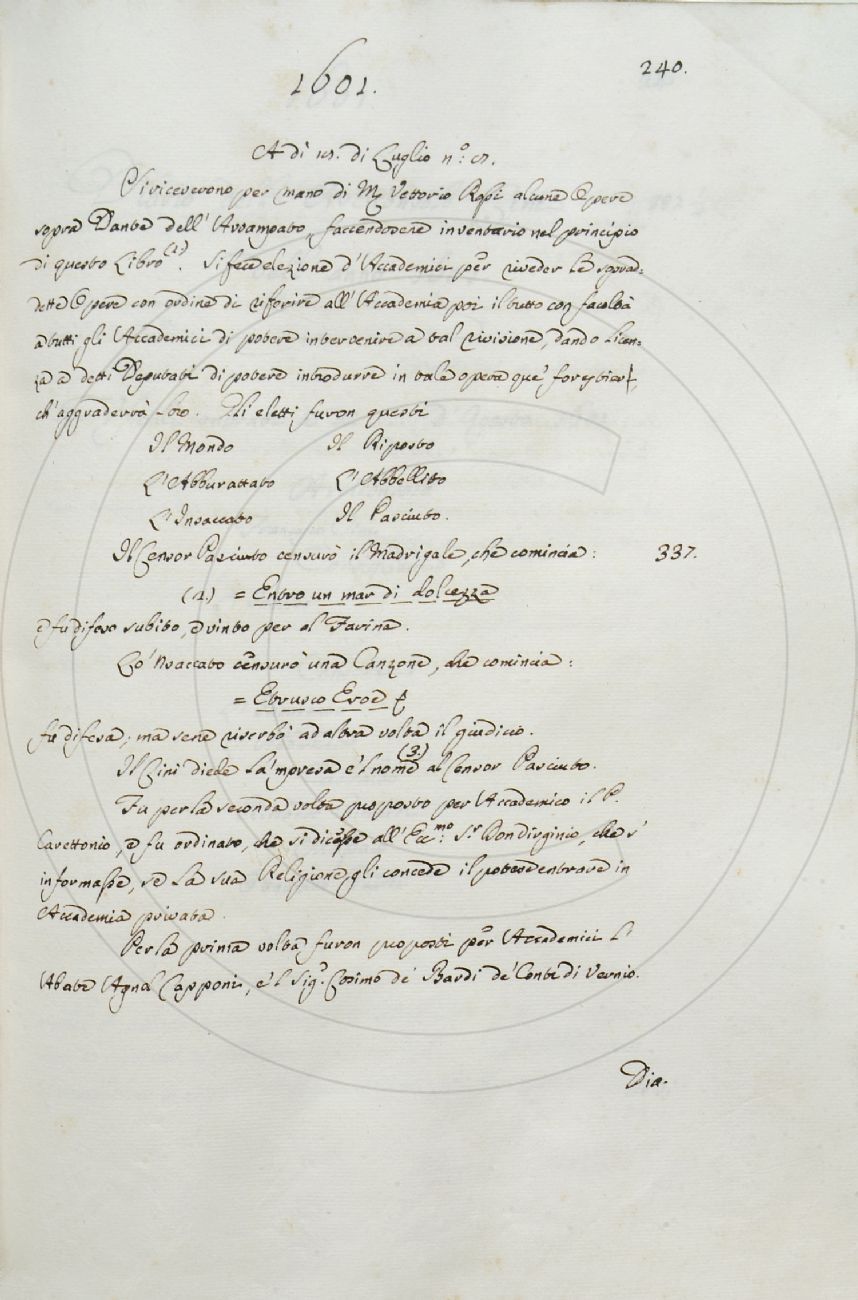 1601.
240.
A dì di Luglio n.º:
Si riceverono per mano di M. Vettorio Rossi alcune Opere
sopra Dante dell'Avvampato, faccendosene inventario nel principio
di questo Libro (1). Si fece elezione d'Accademici per riveder le sprad-
dette Opere con ordine di riferire all'Accademia poi il tutto con facoltà
a tutti gli Accademici di potere intervenire a tal rivisione, dando licen-
za a detti Deputati di potere introdurre in tale opera que' forestieri,
ch'aggraderrà loro. Gli eletti furon questi
Il Mondo Il Riposto
L'Abburattato L'Abbellito
L'Insaccato Il Pasciuto.
Il Censor Pasciuto censurò il Madrigale, che comincia: 337.
(2.) = Entro un mar di dolcezza
e fu difeso subito, e vinto per el Farina.
Lo 'Nsaccato censurò una Canzone, che comincia:
= Etrusco Eroe
fu difesa; ma sene riserbò ad altra volta il giudicio.
Il Cini diede la 'mpresa e 'l nome (3.) al Censor Pasciuto.
Fu per la seconda volta proposto per Accademico il P.
Carettonio, e fu ordinato, che si dicesse all'Ecc.mo: S.r Don Virginio, che s'
informasse, se la sua Religione gli concede il potere entrare in
Accademia privata.
Per la prima volta furon proposti per Accademici l'
Abate Agnol Capponi, e 'l Sig.r Cosimo de' Bardi de' Conti di Vernio.
Dia.